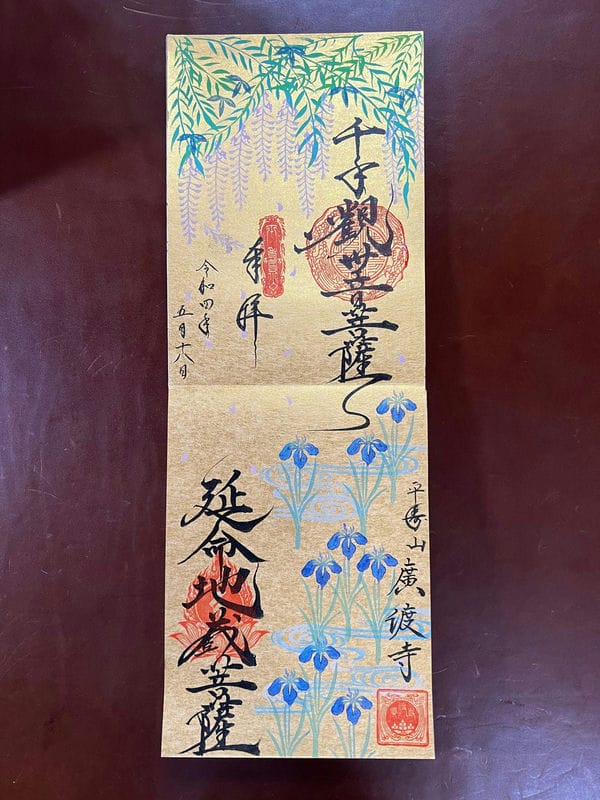 千手觀世音菩薩
奉拝
令和四年
五月十八日
平寿山 廣渡寺
延命地蔵菩薩